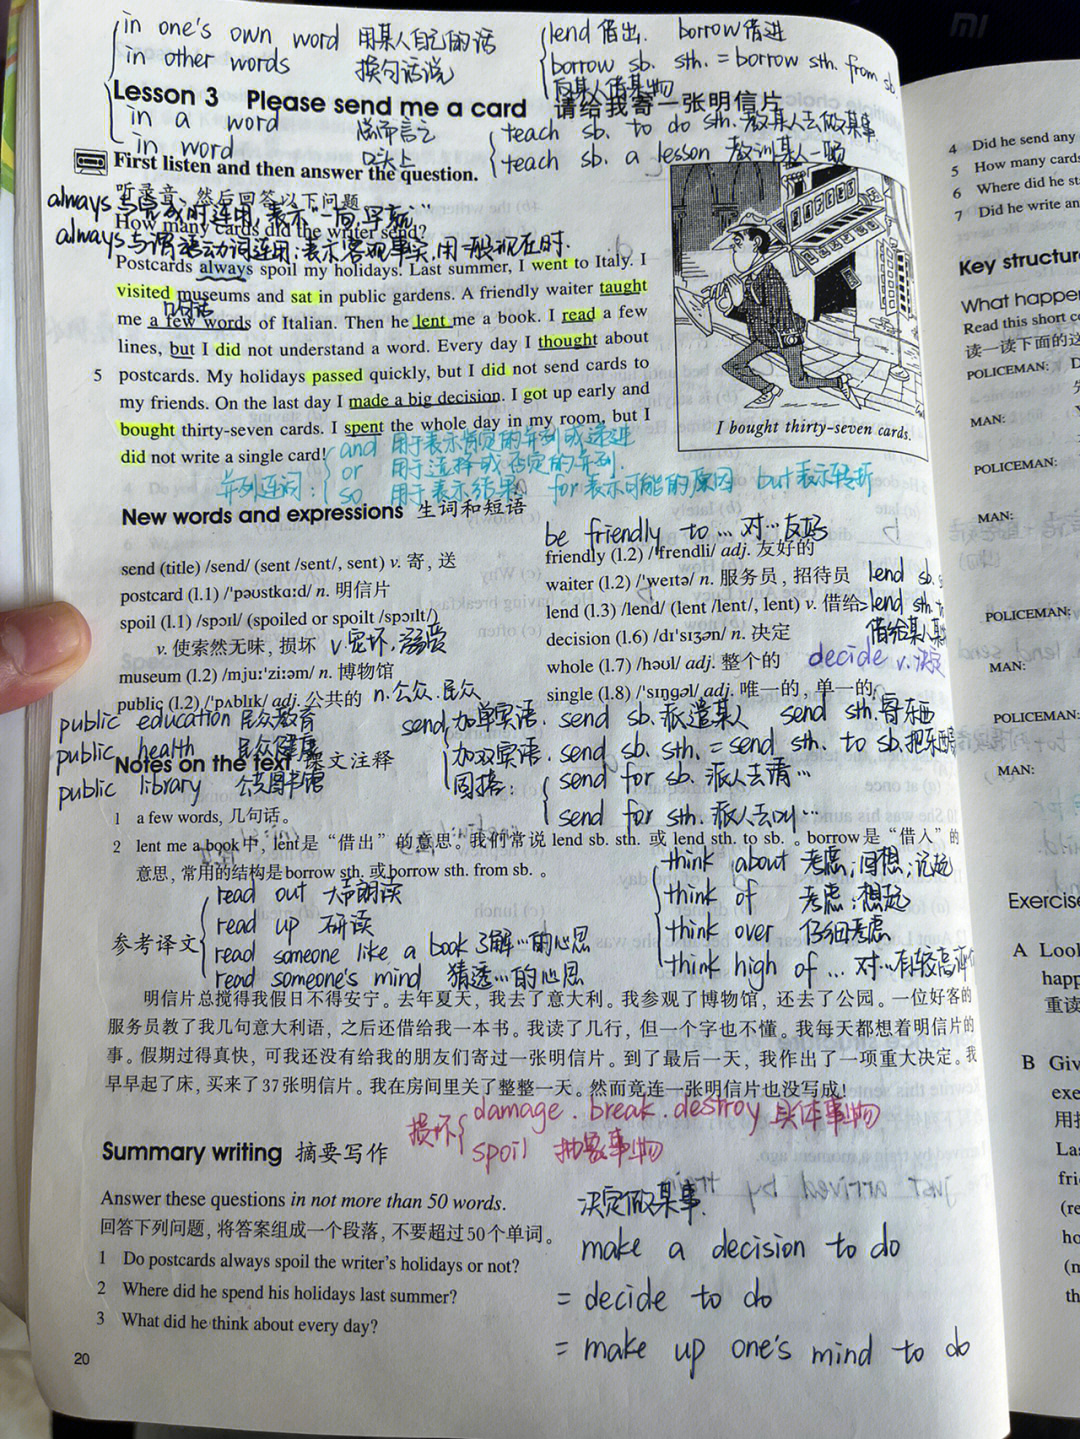 in one's own word 用某人自己的话
in other words 换句话说
lend 借出. borrow 借进
borrow sb. sth. = borrow sth. from sb.
向某人借某物
Lesson 3 Please send me a card 请给我寄一张明信片
in a word 总而言之
in word 口头上
teach sb. to do sth. 教某人去做某事
teach sb. a lesson 教训某人一顿
First listen and then answer the question.
听录音，然后回答以下问题
How many cards did the writer send?
always与谓语动词连用:表示客观事实,用一般现在时.
Postcards always spoil my holidays. Last summer, I went to Italy. I
visited museums and sat in public gardens. A friendly waiter taught
口语话
me a few words of Italian. Then he lent me a book. I read a few
lines, but I did not understand a word. Every day I thought about
5 postcards. My holidays passed quickly, but I did not send cards to
my friends. On the last day I made a big decision. I got up early and
bought thirty-seven cards. I spent the whole day in my room, but I
did not write a single card!
I bought thirty-seven cards.
并列连词:
and 用于表示肯定的并列或递进
or 用于选择或否定的并列.
so 用于表示结果 for 表示可能的原因 but 表示转折
New words and expressions 生词和短语
send (title) /send/ (sent /sent/, sent) v. 寄, 送
postcard (l.1) /'pəʊstkɑ:d/ n. 明信片
spoil (l.1) /spɔɪl/ (spoiled or spoilt /spɔɪlt/)
v. 使索然无味, 损坏 v.宠坏.溺爱
museum (l.2) /mju:'zi:əm/ n. 博物馆
public (l.2) /'pʌblɪk/ adj. 公共的 n.公众.民众
be friendly to ... 对…友好
friendly (l.2) /'frendli/ adj. 友好的
waiter (l.2) /'weɪtə/ n. 服务员, 招待员
lend sb.
lend (l.3) /lend/ (lent /lent/, lent) v. 借给 =lend sth.
借给某人某
decision (l.6) /dɪ'sɪʒən/ n. 决定
whole (l.7) /həʊl/ adj. 整个的 decide v.决定
single (l.8) /'sɪŋgəl/ adj. 唯一的, 单一的
public education 民众教育
public health 民众健康
public library 公共图书馆
send 加单宾语. send sb. 派遣某人 send sth. 寄东西
加双宾语. send sb. sth. = send sth. to sb.
固搭: send for sb. 派人去请…
send for sth. 派人去叫…
Notes on the text 课文注释
1 a few words, 几句话。
2 lent me a book中, lent是“借出”的意思。我们常说 lend sb. sth. 或 lend sth. to sb. 。borrow是“借入”的
意思, 常用的结构是borrow sth. 或borrow sth. from sb. 。
think about 考虑;回想;记起
think of 考虑;想起
think over 仔细考虑
think high of ... 对…有较高评价
read out 大声朗读
read up 研读
read someone like a book 了解…的心思
read someone's mind 猜透…的心思
参考译文
明信片总搅得我假日不得安宁。去年夏天, 我去了意大利。我参观了博物馆, 还去了公园。一位好客的
服务员教了我几句意大利语, 之后还借给我一本书。我读了几行, 但一个字也不懂。我每天都想着明信片的
事。假期过得真快, 可我还没有给我的朋友们寄过一张明信片。到了最后一天, 我作出了一项重大决定。我
早早起了床, 买来了37张明信片。我在房间里关了整整一天。然而竟连一张明信片也没写成!
损坏
damage. break. destroy 具体事物
spoil 抽象事物
Summary writing 摘要写作
Answer these questions in not more than 50 words.
回答下列问题, 将答案组成一个段落, 不要超过50个单词。
1 Do postcards always spoil the writer's holidays or not?
2 Where did he spend his holidays last summer?
3 What did he think about every day?
决定做某事.
make a decision to do
= decide to do
= make up one's mind to do
20
4 Did he send any
5 How many cards
6 Where did he st
7 Did he write an
Key structur
What happen
Read this short c
读一读下面的这
POLICEMAN:
MAN:
POLICEMAN:
MAN:
POLICEMAN:
MAN:
POLICEMAN:
MAN:
Exercise
A Look
happ
重读
B Giv
exe
用括
Las
frie
(re
ho
th